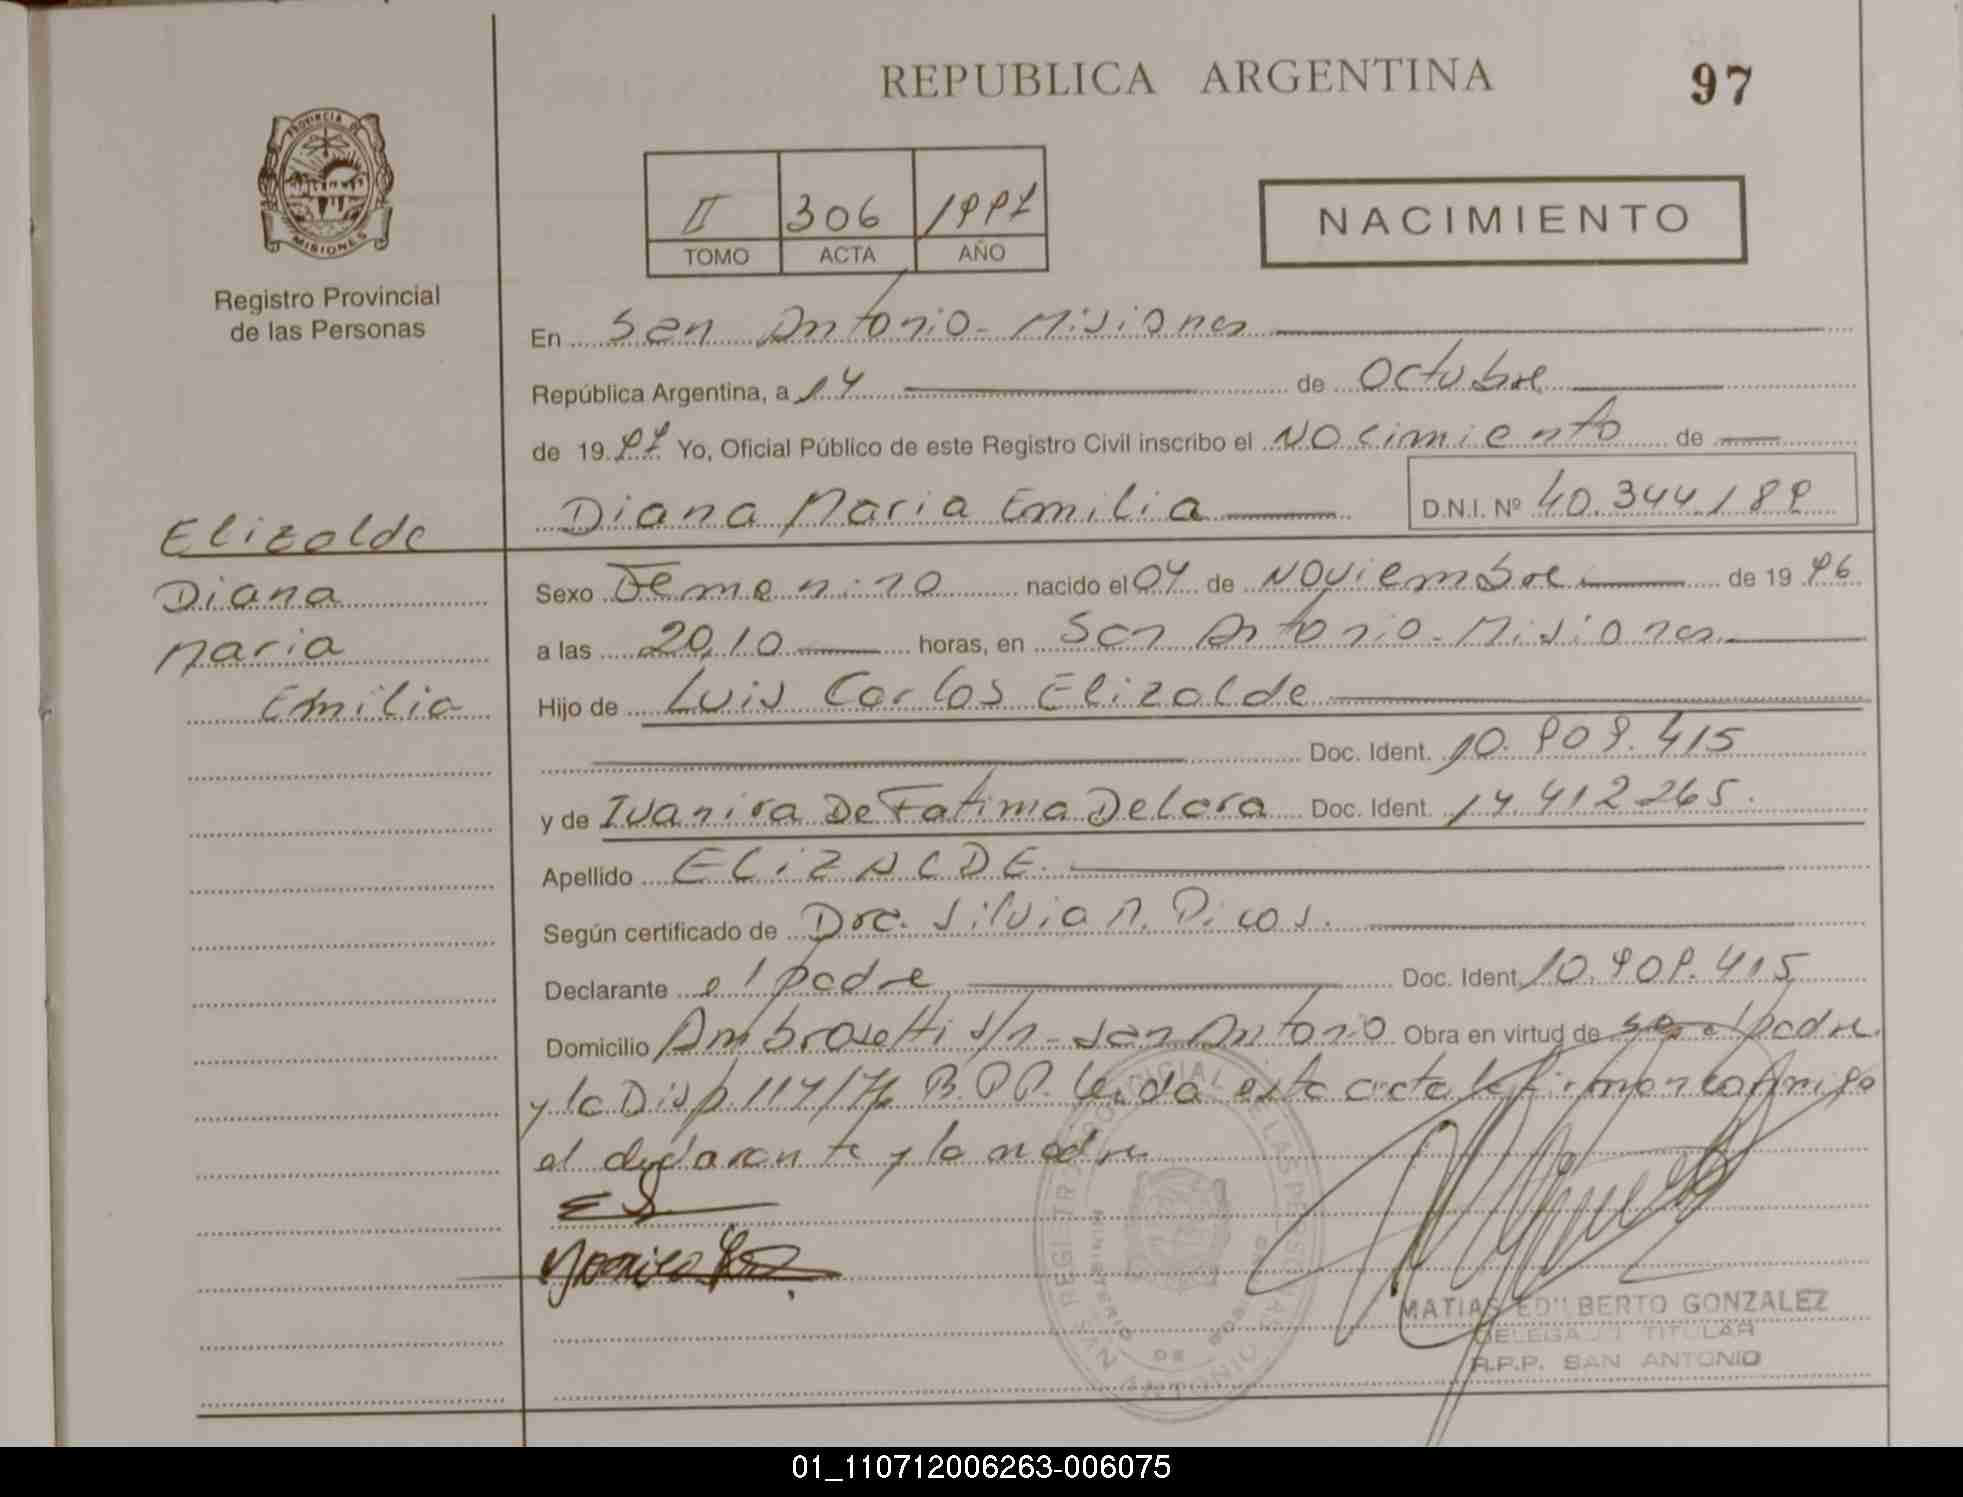 REPUBLICA ARGENTINA
97
PROVINCIA DE
MISIONES
Registro Provincial
de las Personas
II 306 1997
TOMO ACTA AÑO
NACIMIENTO
En San Antonio - Misiones
República Argentina, a 14 de Octubre
de 19 97 Yo, Oficial Público de este Registro Civil inscribo el Nacimiento de
Diana Maria Emilia D.N.I. Nº 40.344.189
Elizalde
Diana
Maria
Emilia
Sexo Femenino nacido el 04 de Noviembre de 19 96
a las 20,10 horas, en San Antonio - Misiones
Hijo de Luis Carlos Elizalde
Doc. Ident. 10.909.415
y de Ivanira De Fatima Delara Doc. Ident. 14.412.265.
Apellido ELIZALDE.
Según certificado de Dra. Silvia N. Picos.
Declarante el padre Doc. Ident. 10.909.415
Domicilio Ambrosetti s/n - San Antonio Obra en virtud de el padre
y la Disp. 114/76 Leida esta acta la firman conmigo
el declarante y la madre
MATIAS EDILBERTO GONZALEZ
DELEGADO TITULAR
R.P.P. SAN ANTONIO
MINISTERIO DE GOBIERNO
SAN ANTONIO
01_110712006263-006075